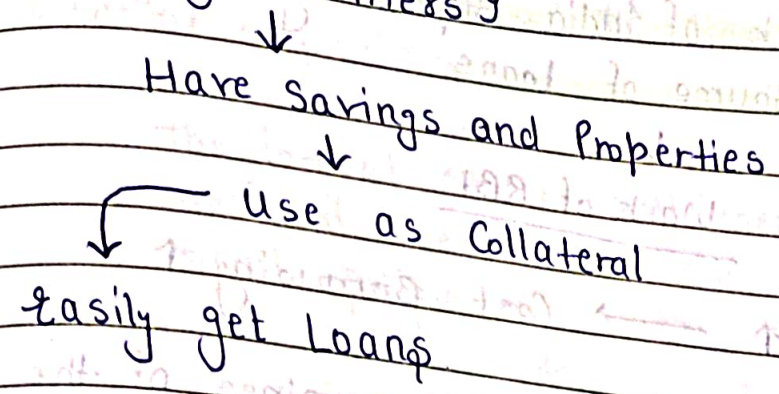 ↓
Have Savings and Properties
↓
Use as Collateral
Easily get Loans